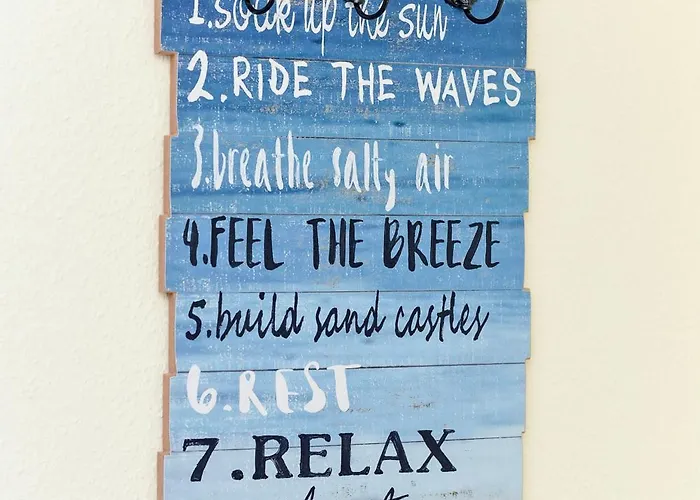 1.soak up the sun
2.RIDE THE WAVES
3.breathe salty air
4.FEEL THE BREEZE
5.build sand castles
6.REST
7.RELAX